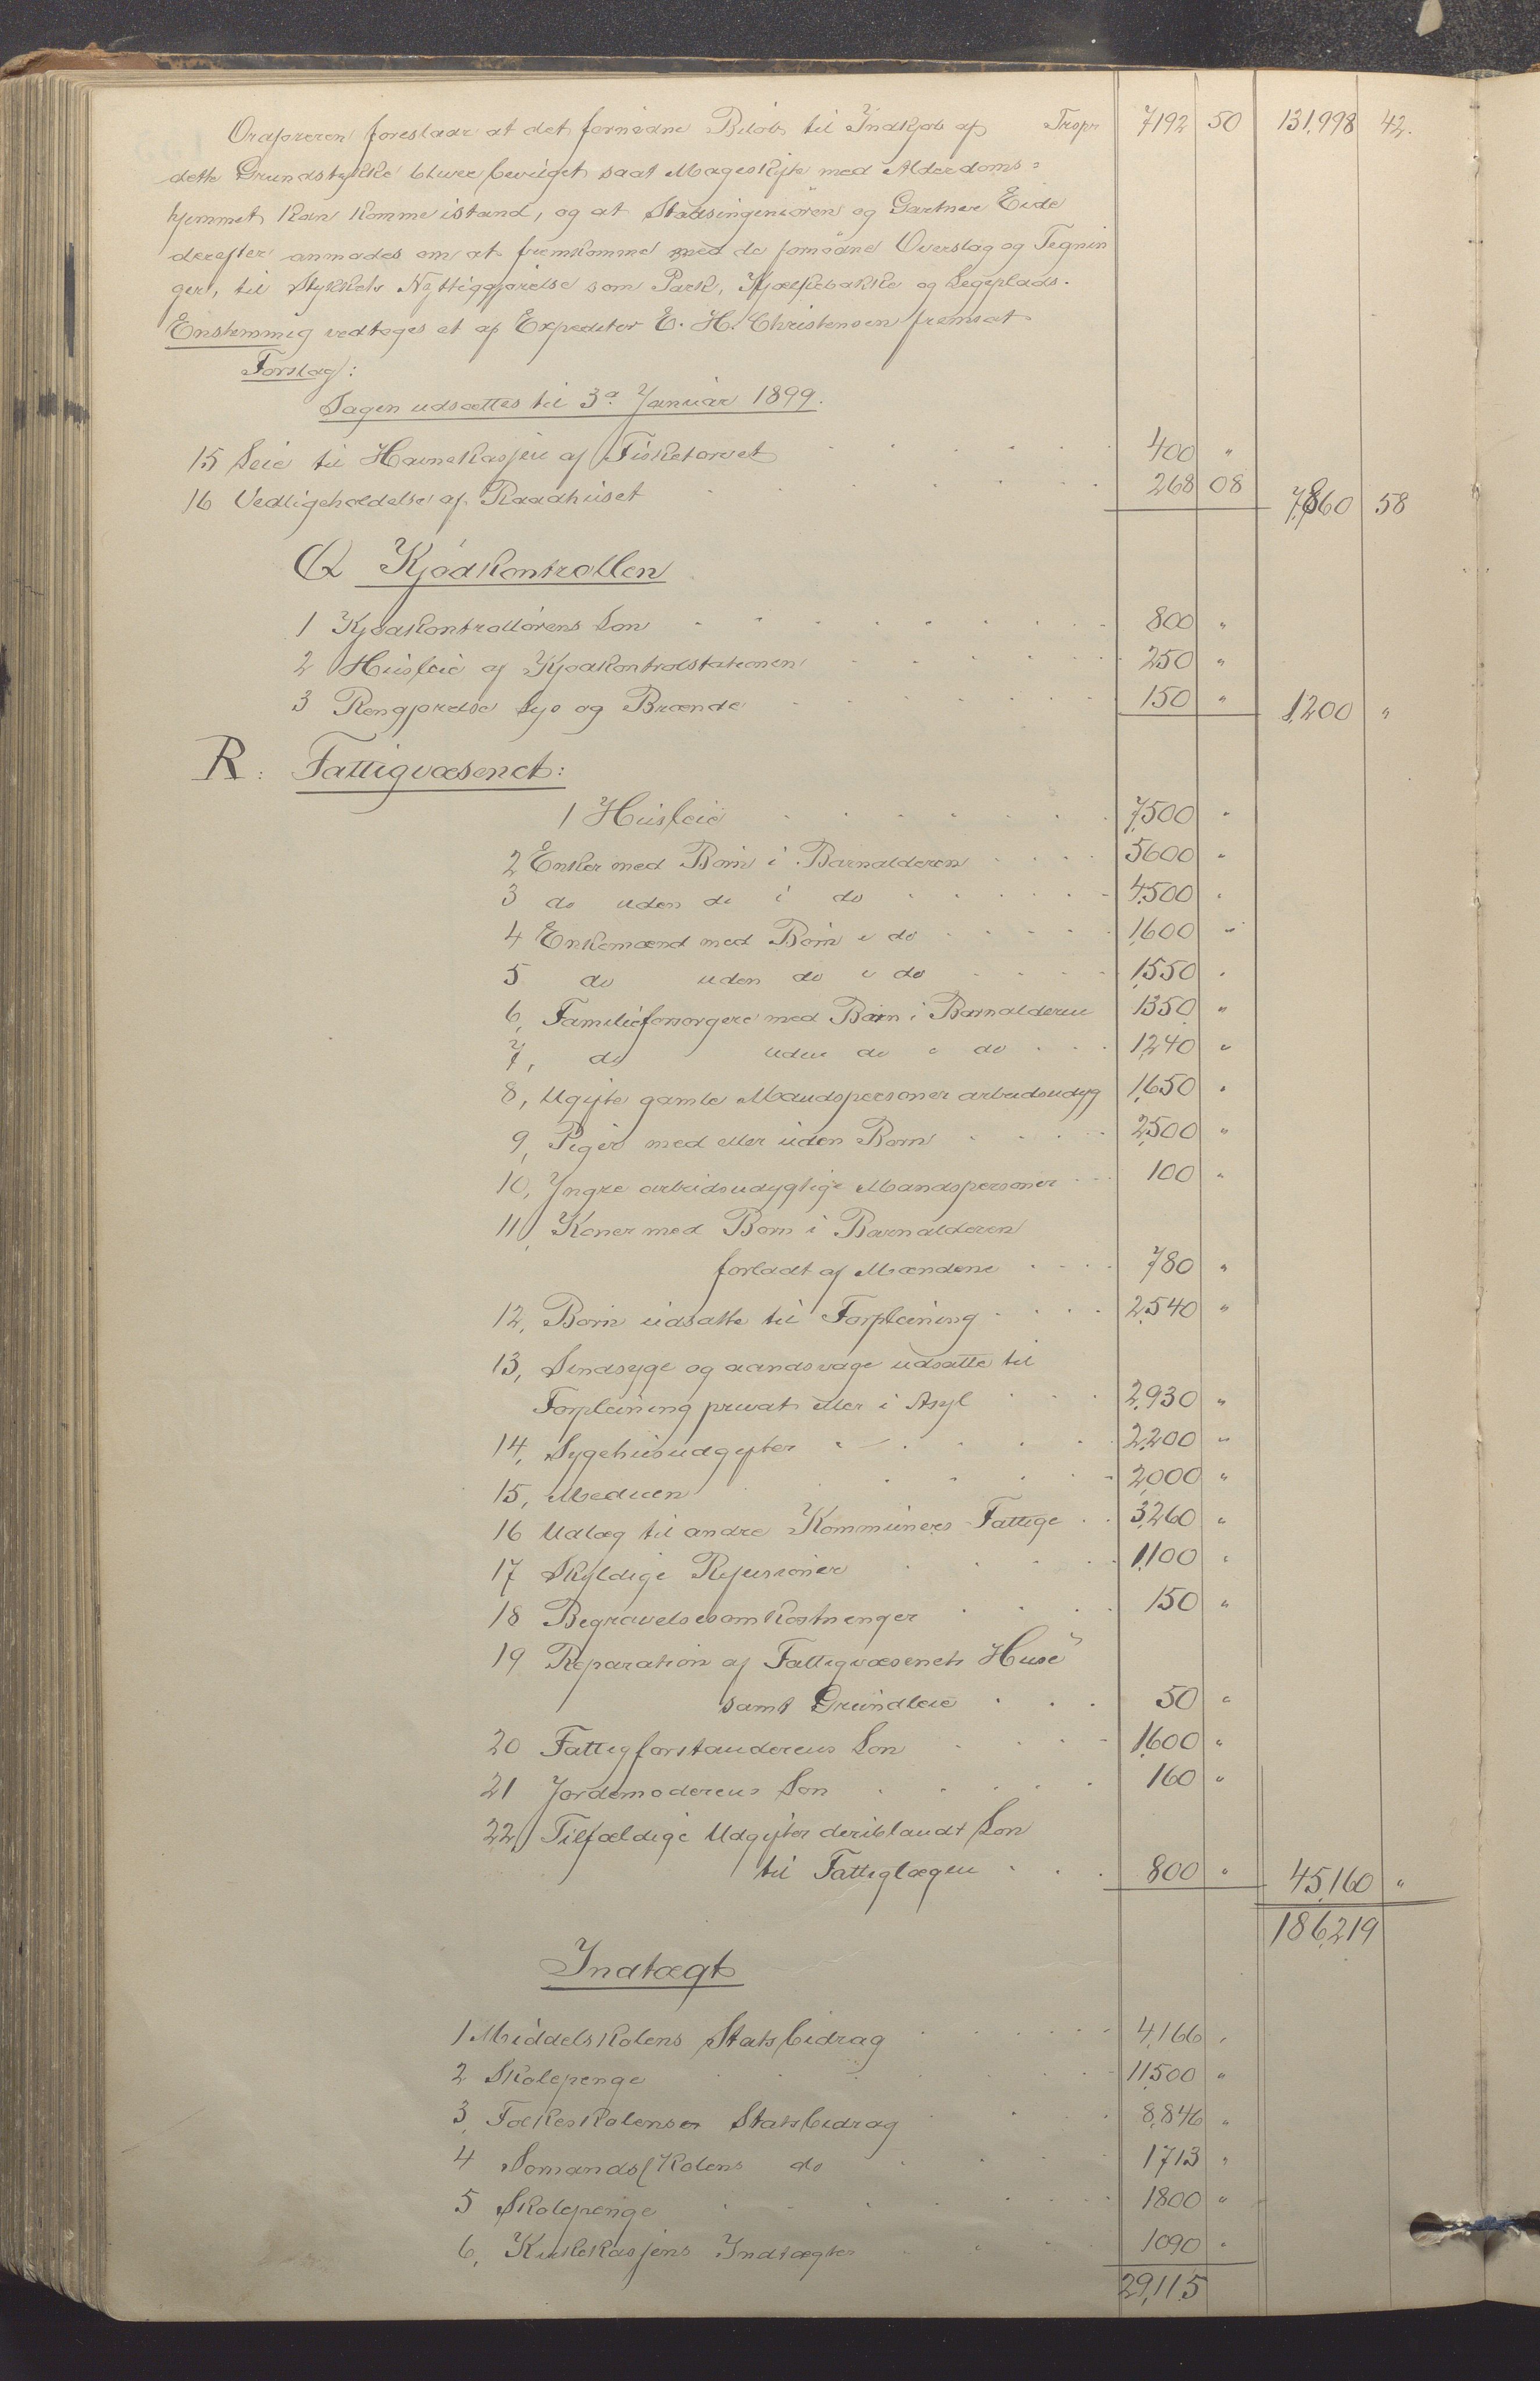 Ordføreren foreslaar at det fornødne Beløb til Indkjøb af Trspr 7192 50 131,998 42.
dette Grundstykke bliver bevilget saat Mageskifte med Alderdoms=
hjemmet kan komme istand, og at Stadsingeniøren og Gartner Eide
derefter anmodes om at fremkomme med de fornødne Overslag og Tegnin
ger, til Stykkets Nyttiggjørelse som Park, Kjælkebakke og Legeplads.
Enstemmig vedtoges et af Expeditør E. H. Christensen fremsat
Forslag:
Sagen udsættes til 3a Januar 1899.
15 Leie til Havnekassen af Fisketorvet 400 "
16 Vedligeholdelse af Raadhuset 268 08 7,860 58
Q Kjødkontrollen
1 Kjødkontrollørens Løn 800 "
2 Husleie af Kjødkontrolstationen 250 "
3 Rengjørelse Lys og Brænde 150 " 1,200 "
R: Fattigvæsenet:
1 Husleie 7,500 "
2 Enker med Børn i Barnalderen 5600 "
3 do uden do i do 4,500 "
4 Enkemænd med Børn i do 1,600 "
5 do uden do i do 1,550 "
6, Familieforsørgere med Børn i Barnalderen 1350 "
7, do uden do i do 1,240 "
8, Ugifte gamle Mandspersoner arbeidsudyg 1,650 "
9, Piger med eller uden Børn 2,500 "
10, Yngre arbeidsudygtige Mandspersoner 100 "
11, Koner med Børn i Barnalderen
forladt af Mændene 780 "
12, Børn udsatte til Forpleining 2,540 "
13, Sindsyge og aandsvage udsatte til
Forpleining privat eller i Asyl 2,930 "
14, Sygehusudgifter 2,200 "
15, Medicin 2,000 "
16 Udlæg til andre Kommuners Fattige 3,260 "
17 Skyldige Refusioner 1,100 "
18 Begravelsesomkostninger 150 "
19 Reparation af Fattigvæsenets Huse
samt Grundleie 50 "
20 Fattigforstanderens Løn 1,600 "
21 Jordemoderens Løn 160 "
22, Tilfældige Udgifter deriblandt Løn
til Fattiglægen 800 " 45,160 "
186,219
Indtægt
1 Middelskolens Statsbidrag 4,166 "
2 Skolepenge 11,500 "
3, Folkeskolens Statsbidrag 8,846 "
4 Sømandsskolens do 1713 "
5 Skolepenge 1800 "
6, Kirkekassens Indtægter 1090 "
29,115